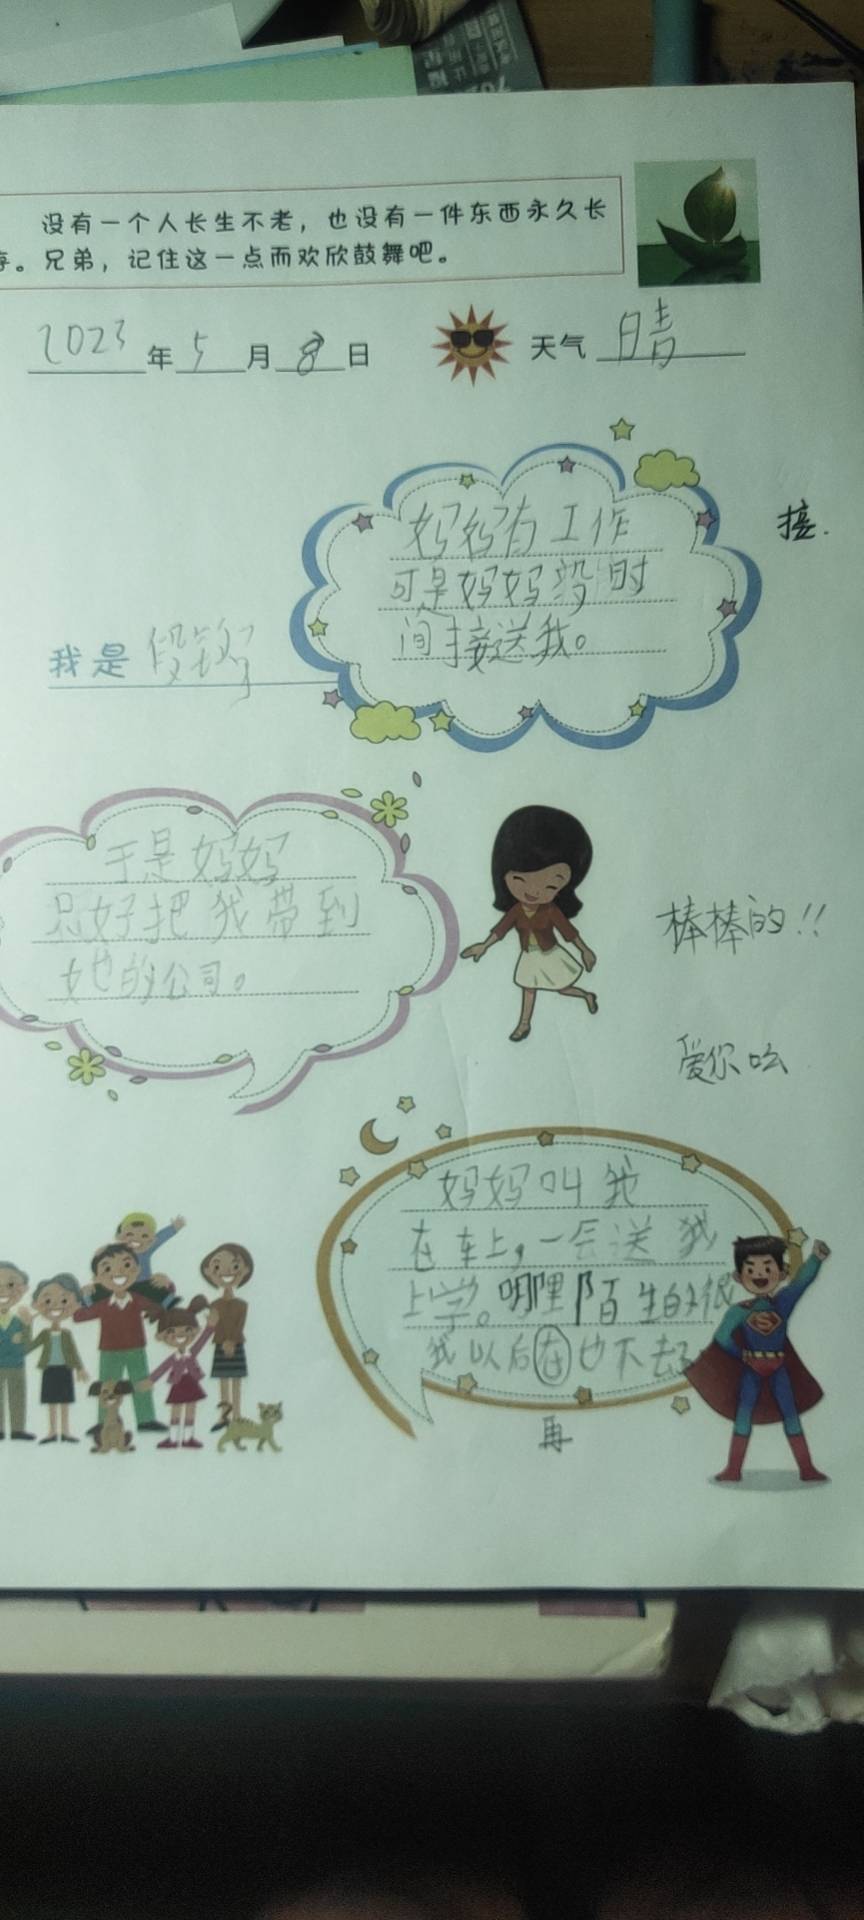 没有一个人长生不老，也没有一件东西永久长
存。兄弟，记住这一点而欢欣鼓舞吧。
2023年5月8日
天气 晴
妈妈有工作
可是妈妈 时
间接送我。
接.
我是 段
于是妈妈
只好把我带到
她的公司。
棒棒的!!
爱你吆
妈妈叫我
在车上，一会送我
上学。 陌生的很
我以后在也不去了
再